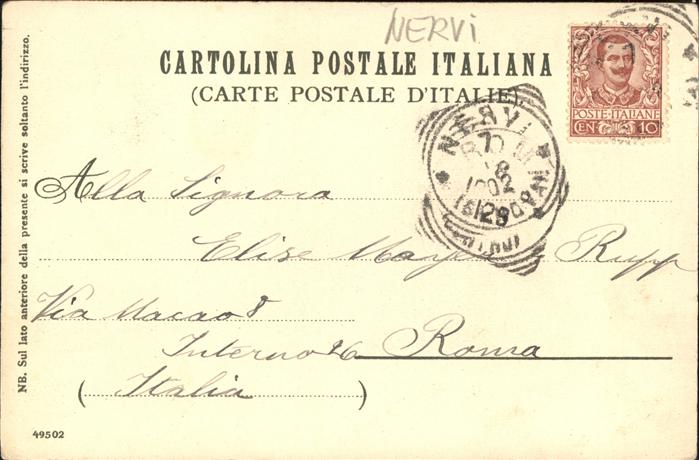 NERVi
CARTOLINA POSTALE ITALIANA
(CARTE POSTALE D'ITALIE)
POSTE·ITALIANE
CEN 10
NERVI
1902
Alla Signora
Elise Mayer Rupp
Via Macao 8
Interno 26 Roma
(Italia)
NB. Sul lato anteriore della presente si scrive soltanto l'indirizzo.
49502